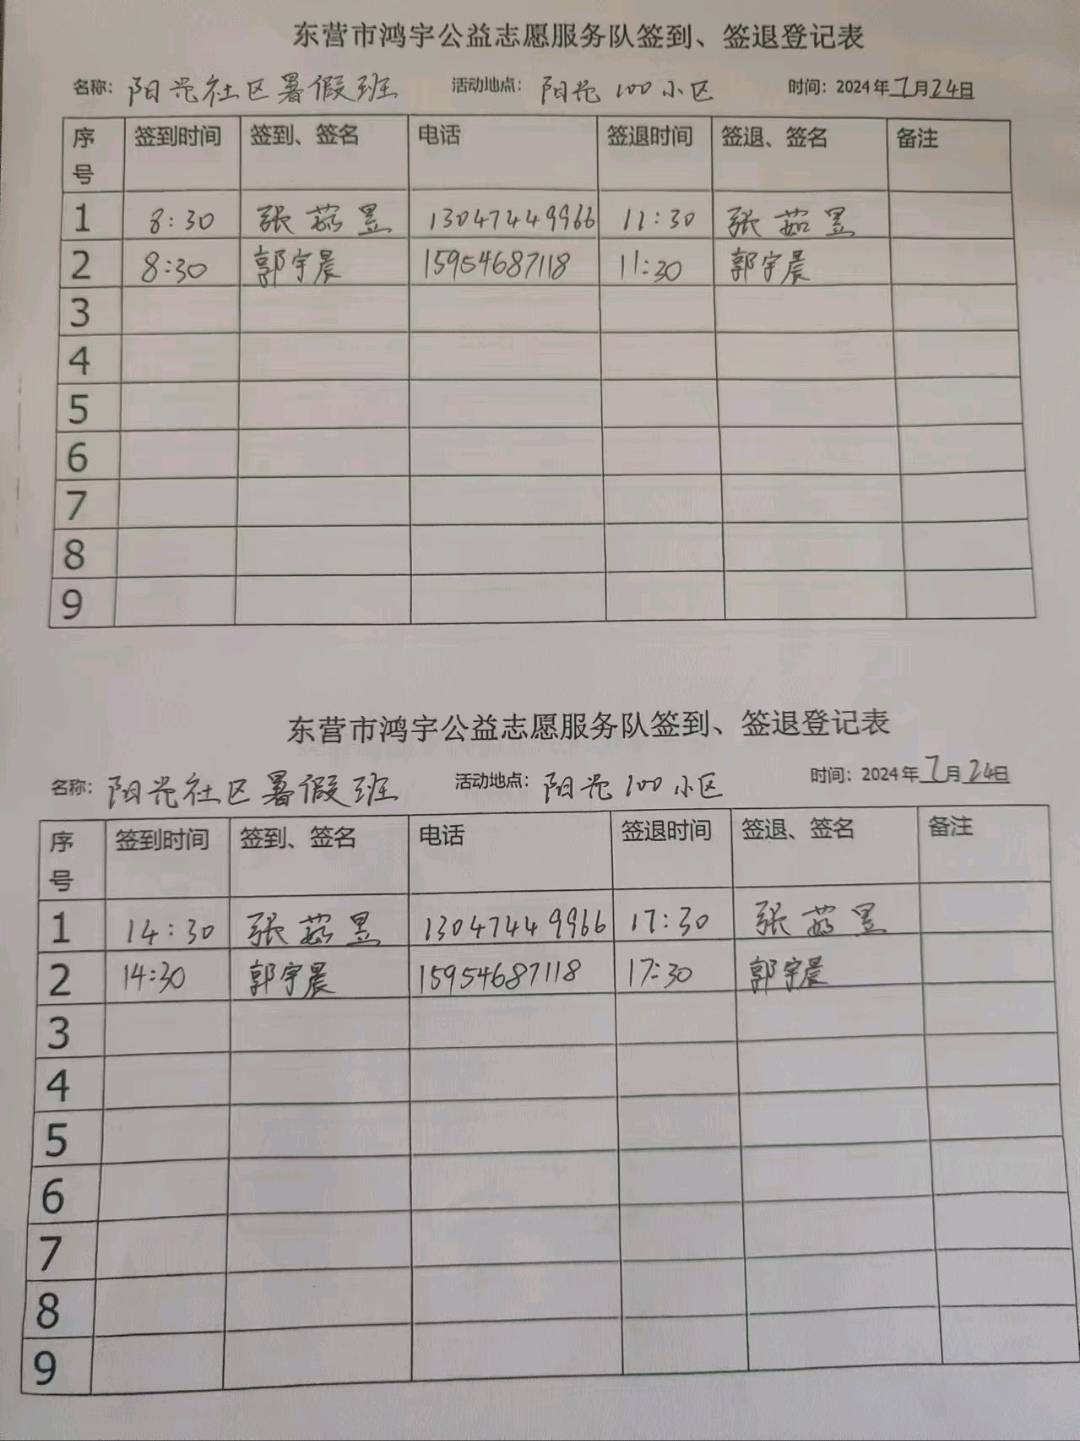 东营市鸿宇公益志愿服务队签到、签退登记表
名称: 阳光社区暑假班 活动地点: 阳光100小区 时间: 2024年7月24日
序号 签到时间 签到、签名 电话 签退时间 签退、签名 备注
1 8:30 张茹昱 13047449966 11:30 张茹昱
2 8:30 郭宇晨 15954687118 11:30 郭宇晨
3
4
5
6
7
8
9
东营市鸿宇公益志愿服务队签到、签退登记表
名称: 阳光社区暑假班 活动地点: 阳光100小区 时间: 2024年7月24日
序号 签到时间 签到、签名 电话 签退时间 签退、签名 备注
1 14:30 张茹昱 13047449966 17:30 张茹昱
2 14:30 郭宇晨 15954687118 17:30 郭宇晨
3
4
5
6
7
8
9